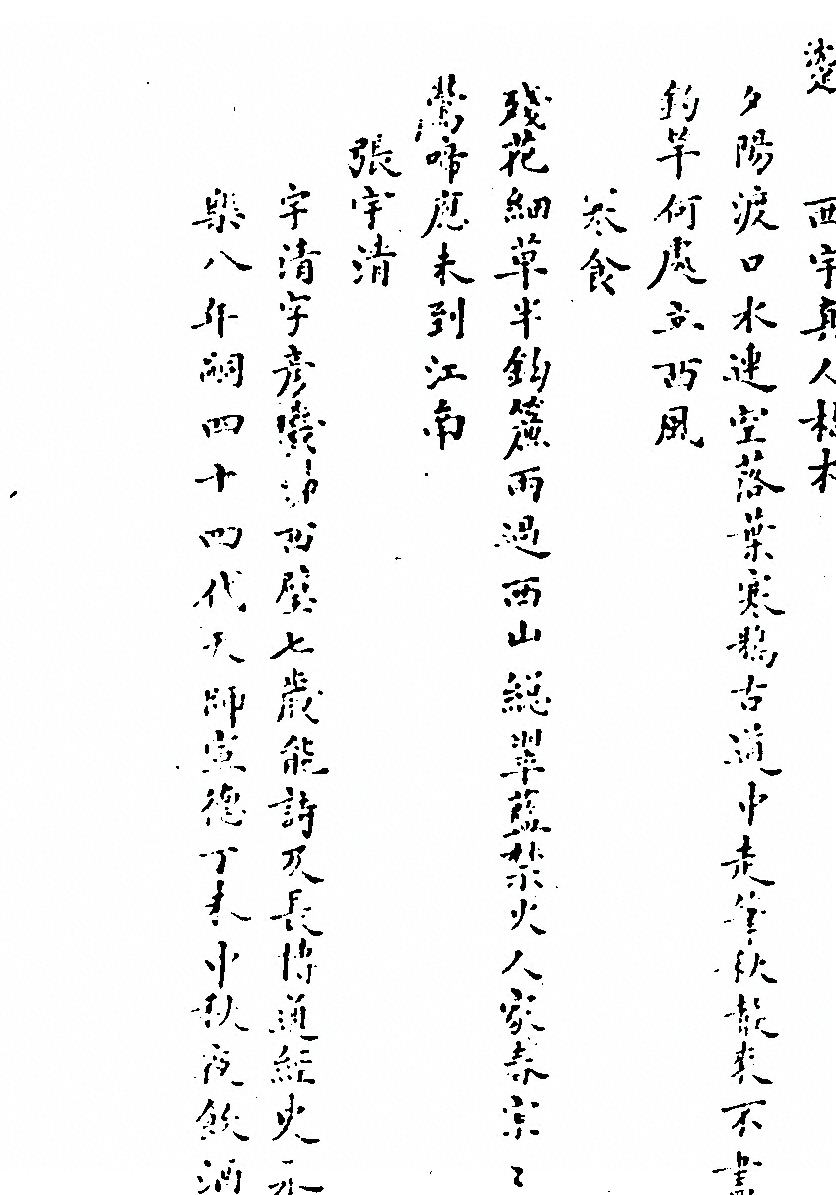 西宇真人
夕陽渡口水連空落葉寒鴉古道中走筆秋款來不盡
釣竿何處立西風
寒食
殘花細草半鈎簾雨過西山總翠藍禁火人家春寂〻
鶯啼應未到江南
張宇清
宇清字彥璣西璧七歲能詩及長博道經史永
樂八年嗣四十四代天師宣德丁未中秋夜飲酒